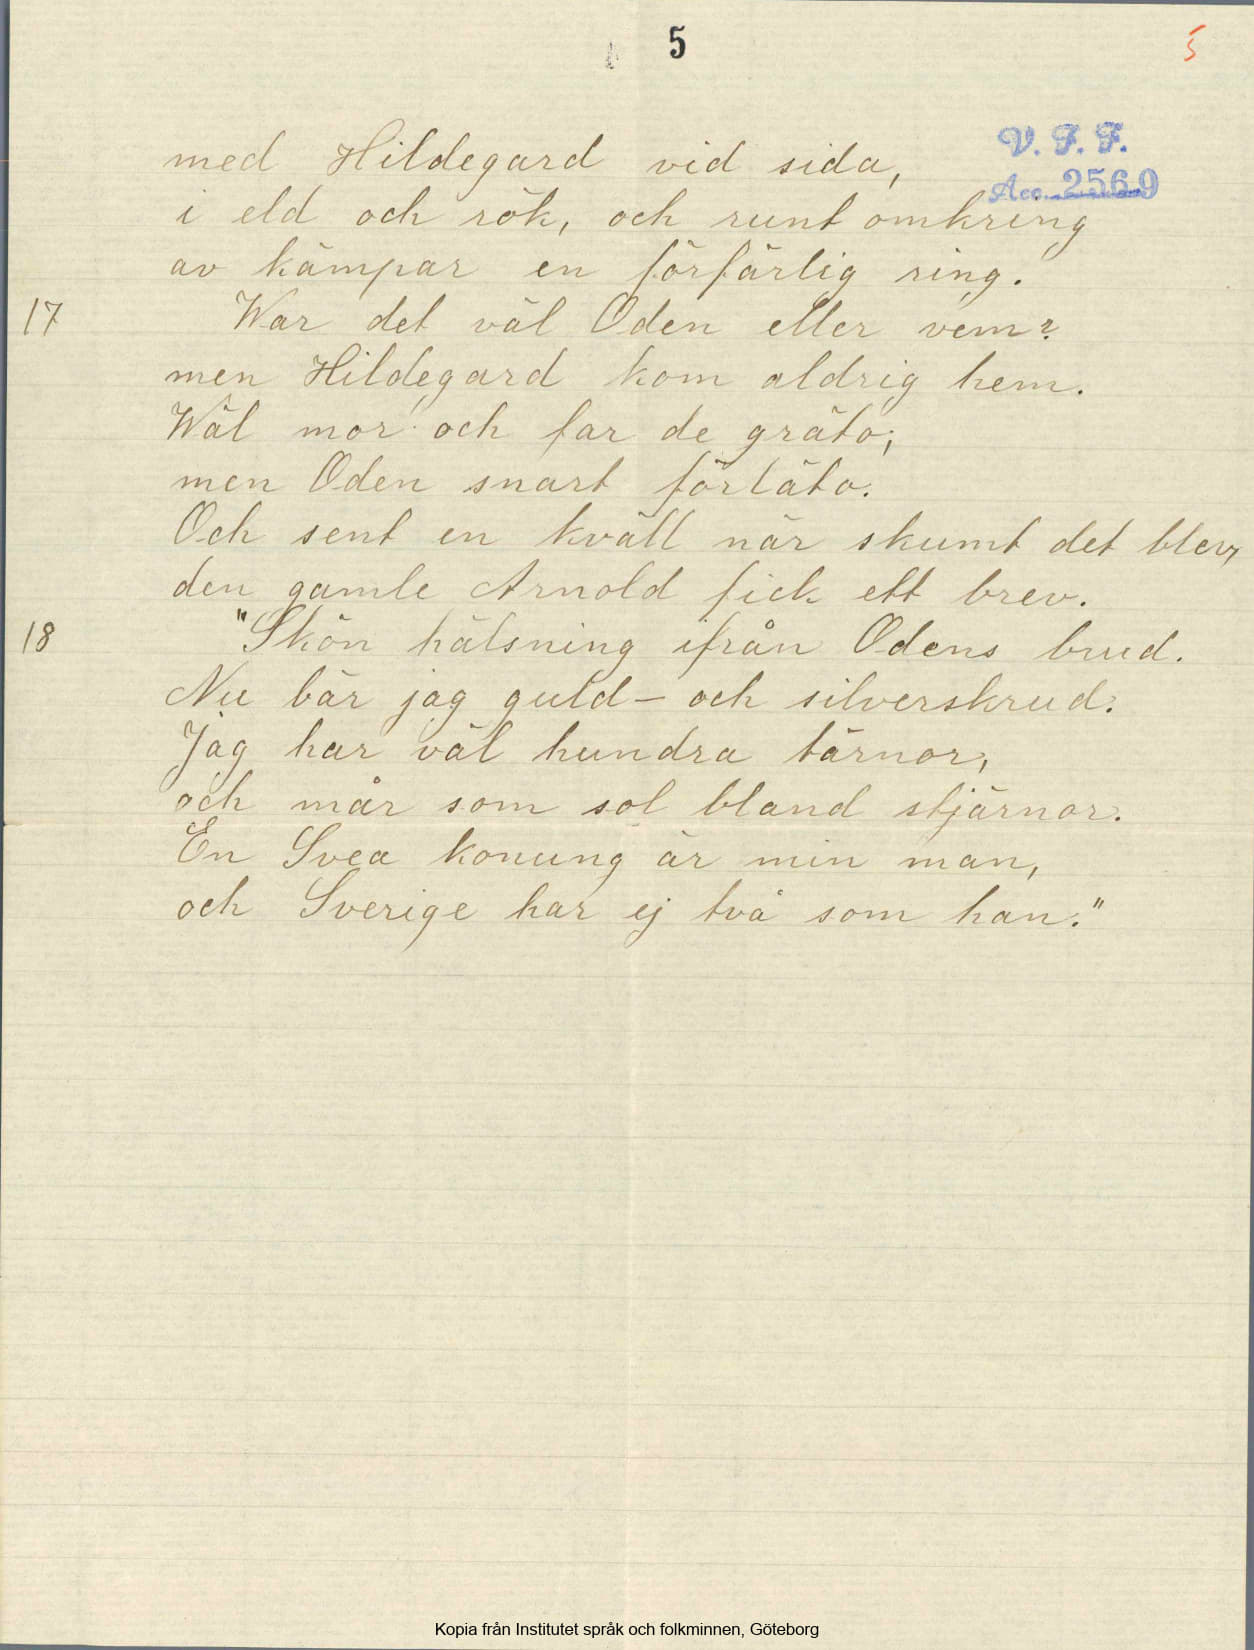 5
5
V. F. F.
Acc. 2569
med Hildegard vid sida,
i eld och rök, och runt omkring
av kämpar en förfärlig ring.
17 War det väl Oden eller vem?
men Hildegard kom aldrig hem.
Wäl mor och far de gräto;
men Oden snart förläto.
Och sent en kväll när skumt det blev,
den gamle Arnold fick ett brev.
18 "Skön hälsning ifrån Odens brud.
Nu bär jag guld- och silverskrud.
Jag har väl hundra tärnor,
och mår som sol bland stjärnor.
En Svea konung är min man,
och Sverige har ej två som han."
Kopia från Institutet språk och folkminnen, Göteborg